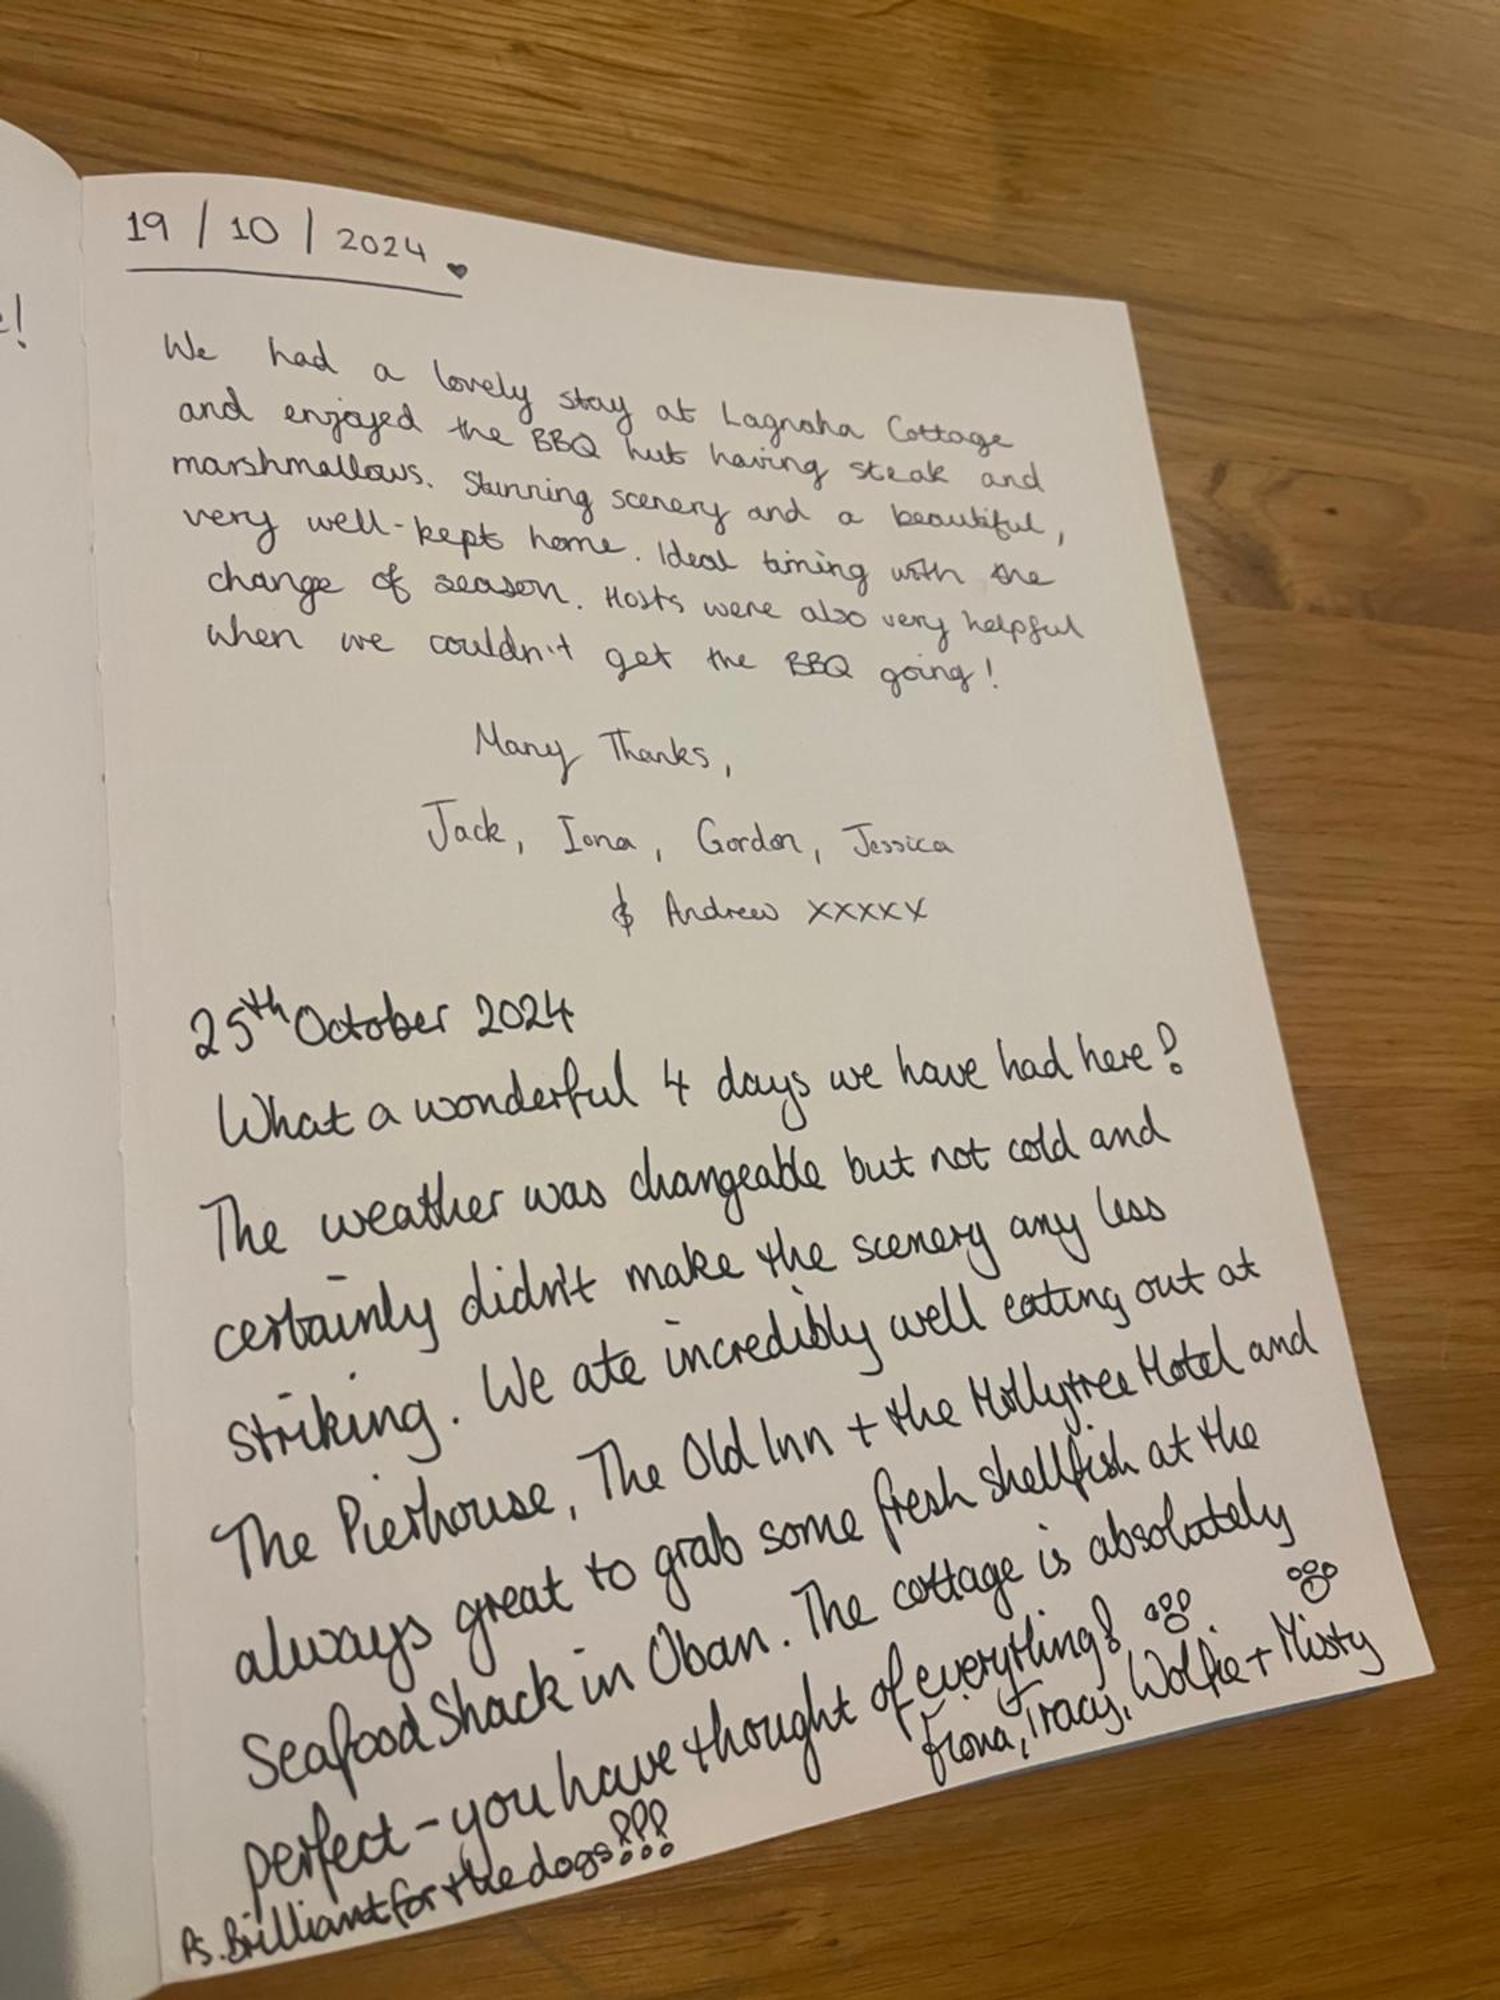 e!
19 / 10 / 2024 ♥
We had a lovely stay at Lagnaha Cottage
and enjoyed the BBQ hut having steak and
marshmallows. Stunning scenery and a beautiful,
very well-kept home. Ideal timing with the
change of season. Hosts were also very helpful
when we couldn't get the BBQ going!
Many Thanks,
Jack, Iona, Gordon, Jessica
& Andrew xxxxx
25th October 2024
What a wonderful 4 days we have had here!
The weather was changeable but not cold and
certainly didn't make the scenery any less
striking. We ate incredibly well eating out at
The Pierhouse, The Old Inn + the Hollytree Hotel and
always great to grab some fresh shellfish at the
Seafood Shack in Oban. The cottage is absolutely
perfect - you have thought of everything!
Fiona, Tracy, Wolfie + Misty
Ps. Brilliant for the dogs!!!